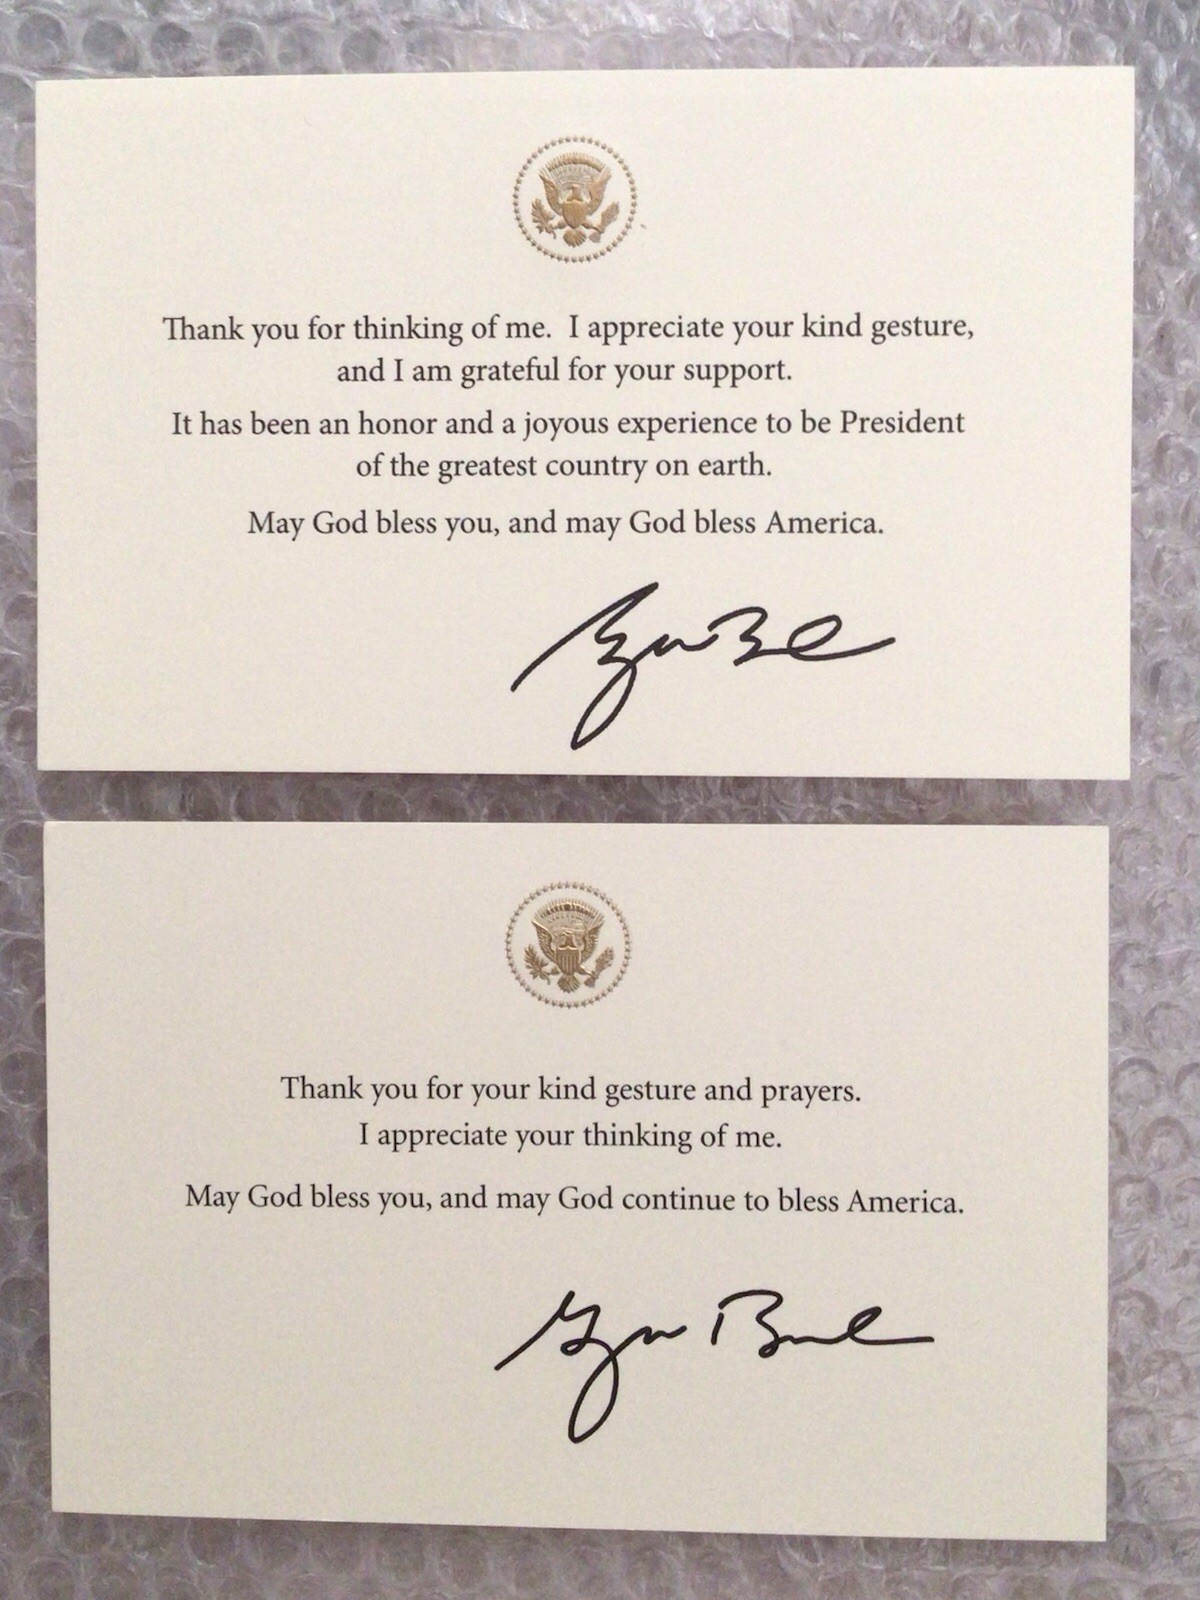 Thank you for thinking of me. I appreciate your kind gesture,
and I am grateful for your support.
It has been an honor and a joyous experience to be President
of the greatest country on earth.
May God bless you, and may God bless America.
Thank you for your kind gesture and prayers.
I appreciate your thinking of me.
May God bless you, and may God continue to bless America.